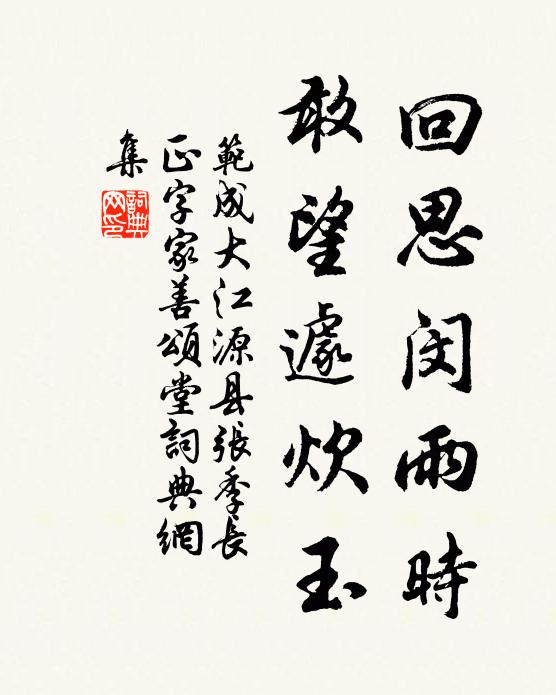 回思闵雨時
敢望遽炊玉
範成大江源县張季長
正字家善頌堂詞典網
集
詞典
网印